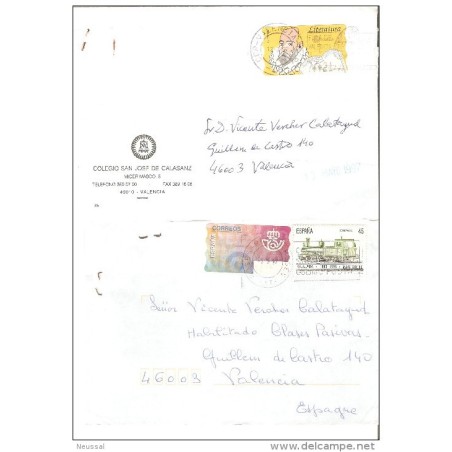 Literatura
Sr. D. Vicente Vercher Calatayud
Guillem de Castro 140
46003 Valencia
COLEGIO SAN JOSÉ DE CALASANZ
MICER MASCÓ 5
TELÉFONO
FAX
VALENCIA
CORREOS
ESPAÑA
ESPAÑA
45
Señor Vicente Vercher Calatayud
Habilitado Clases Pasivas
Guillem de Castro 140
46003 Valencia
Espagne
Neussal
delcampe.net